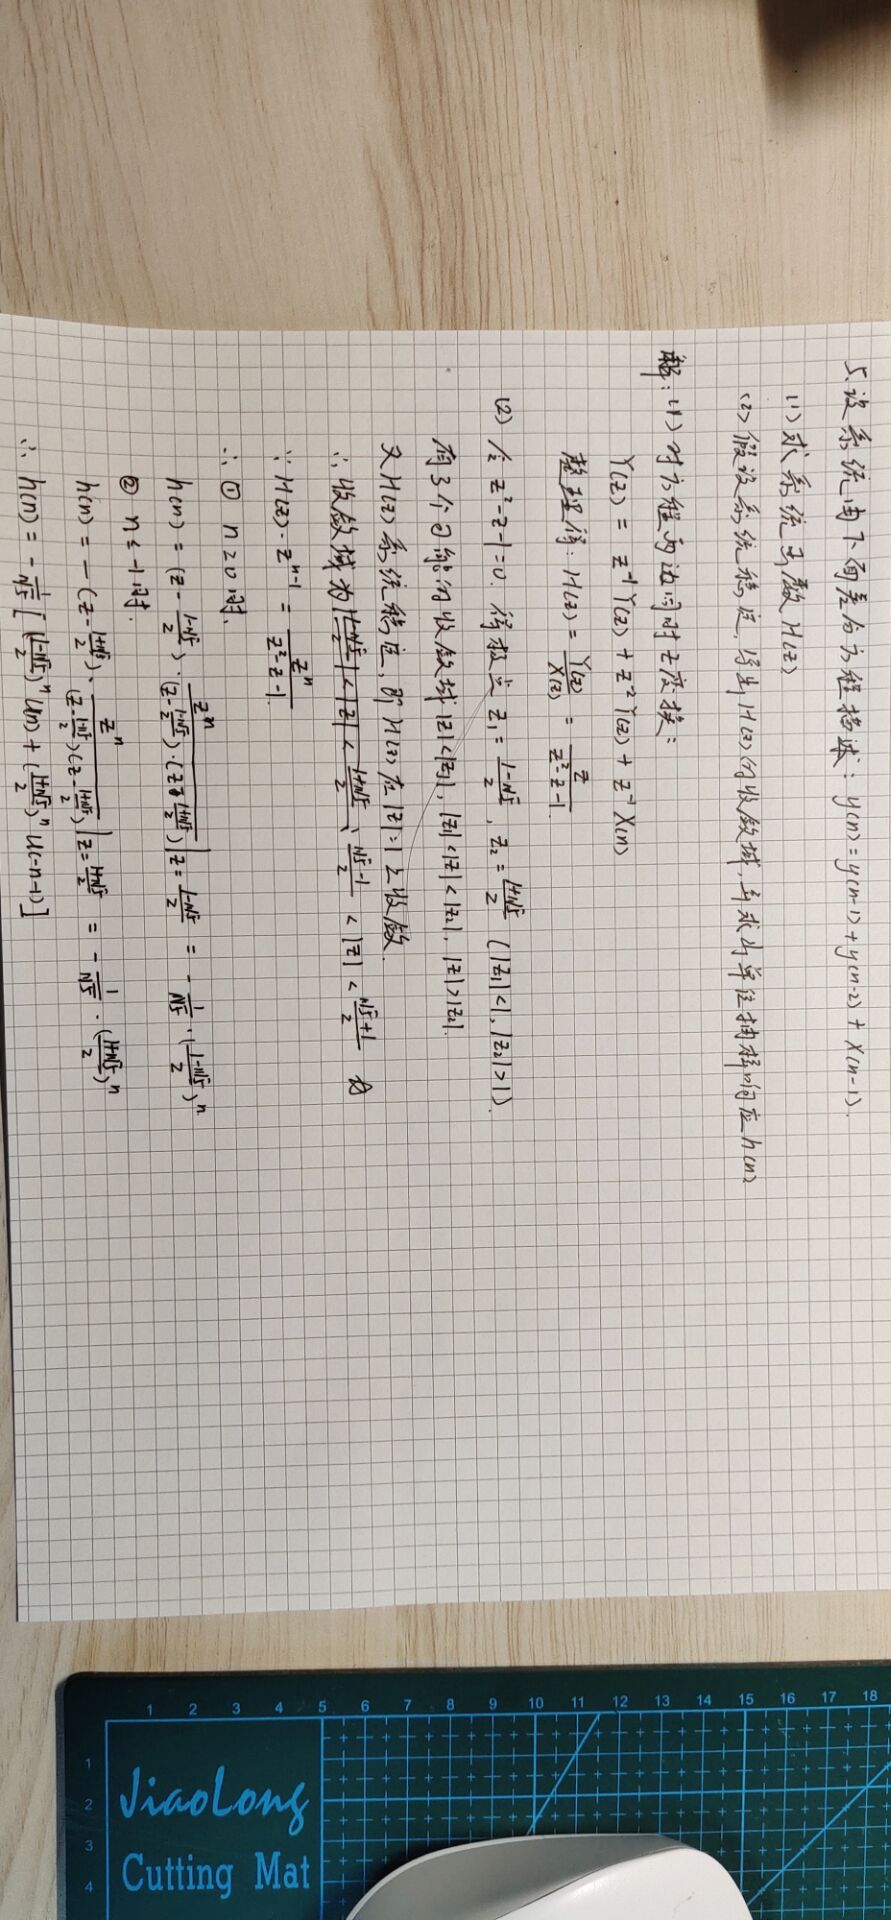 5. 设系统由下面差分方程描述: y(n)=y(n-1)+y(n-2)+X(n-1).
(1) 求系统函数H(z)
(2) 假设系统稳定, 写出H(z)的收敛域, 并求出单位抽样响应h(n)
解: (1) 对方程两边同时z变换:
Y(z) = z⁻¹Y(z) + z⁻²Y(z) + z⁻¹X(n)
整理得: H(z) = Y(z)/X(z) = z/(z²-z-1).
(2) 令 z²-z-1=0. 得极点 z₁ = (1-√5)/2, z₂ = (1+√5)/2 (|z₁|<1, |z₂|>1).
有3个可能的收敛域 |z|<|z₁|, |z₁|<|z|<|z₂|, |z|>|z₂|.
又H(z)系统稳定, 即H(z)在|z|=1上收敛.
∴ 收敛域为 |(1-√5)/2| < |z| < (1+√5)/2, (√5-1)/2 < |z| < (√5+1)/2
∵ H(z)·zⁿ⁻¹ = zⁿ/(z²-z-1).
∴ ① n≥0时,
h(n) = (z-(1-√5)/2)·zⁿ/((z-(1-√5)/2)·(z-(1+√5)/2))|z=(1-√5)/2 = -1/√5·((1-√5)/2)ⁿ
② n≤-1时.
h(n) = -(z-(1+√5)/2)·zⁿ/((z-(1-√5)/2)(z-(1+√5)/2))|z=(1+√5)/2 = -1/√5·((1+√5)/2)ⁿ
∴ h(n) = -1/√5[((1-√5)/2)ⁿu(n)+((1+√5)/2)ⁿu(-n-1)]
1 2 3 4 5 6 7 8 9 10 11 12 13 14 15 16 17 18
1
2
3
4
JiaoLong
Cutting Mat